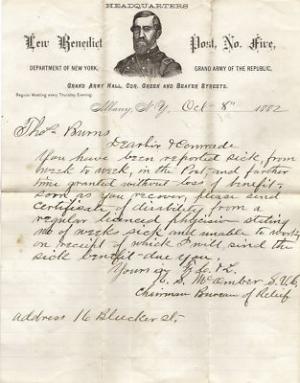 HEADQUARTERS
Lew Benedict Post, No. Five,
DEPARTMENT OF NEW YORK, GRAND ARMY OF THE REPUBLIC,
GRAND ARMY HALL, COR. GREEN AND BEAVER STREETS.
Regular Meeting every Thursday Evening.
Albany, N.Y. Oct 8th 1882
Thos. Burns
Dear Sir & Comrade
You have been reported sick, from
week to week, in the Post, and further
time granted without loss of benefit
soon as you recover, please send
certificate of disability from a
regular licenced physician stating
no of weeks sick and unable to work,
on receipt of which I will send the
sick benefit due you.
Yours in F. C. & L.
Chairman Bureau of Relief
address 16 Bleecker St.